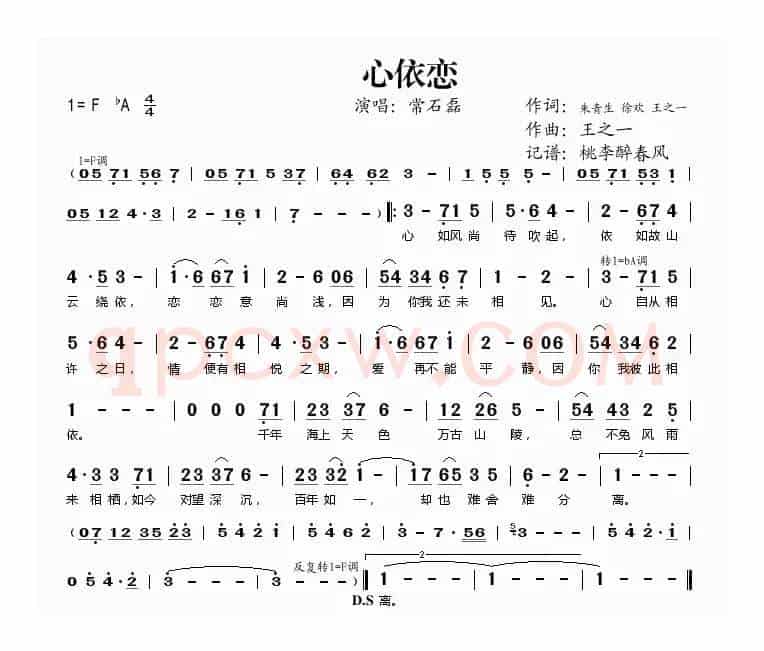 心依恋
1=F ♭A 4/4
演唱：常石磊
作词：朱青生 徐欢 王之一
作曲：王之一
记谱：桃李醉春风
1=F调
(05 71 56 7 | 05 71 5 37 | 64 62 3 - | 1 5 5 5 - | 05 71 53 1 |
05 12 4·3 | 2 - 16 1 | 7 - - -) ‖: 3 - 71 5 | 5·6 4 - | 2 - 67 4 |
心 如风尚 待 吹起， 依 如故山
转1=bA调
4·5 3 - | 1·6 67 1 | 2 - 6 06 | 54 34 6 7 | 1 - - - | 3 - 71 5 |
云绕依， 恋 恋意尚浅，因 为你我还未相 见。 心 自从相
5·6 4 - | 2 - 67 4 | 4·5 3 - | 1·6 67 1 | 2 - 6 06 | 54 34 6 7 |
许之日， 情 便有相 悦之期， 爱 再不能 平 静，因 你 我彼此相
1 - - - | 0 0 0 71 | 23 37 6 - | 12 26 5 - | 54 04 3 5 |
依。 千年 海上天色 万古山陵， 总 不免风雨
4·3 3 71 | 23 37 6 - | 23 32 1 - | 17 65 3 5 | 6 - 2 - | 1 - - - |
未相槓，如今 对望深沉， 百年如一， 却也难舍 难 分 离。
2
(07 12 35 23 | 5 4 2 1 | 5 4 6 2 | 3 - 7·56 | 3 - - - | 5 4 2·1 |
反复转1=F调
2
0 5 4·2 | 3 - - - | 3 - - -) ‖ 1 - - - | 1 - - - | 1 - - - ‖
D.S 离。
qpcxw.COM